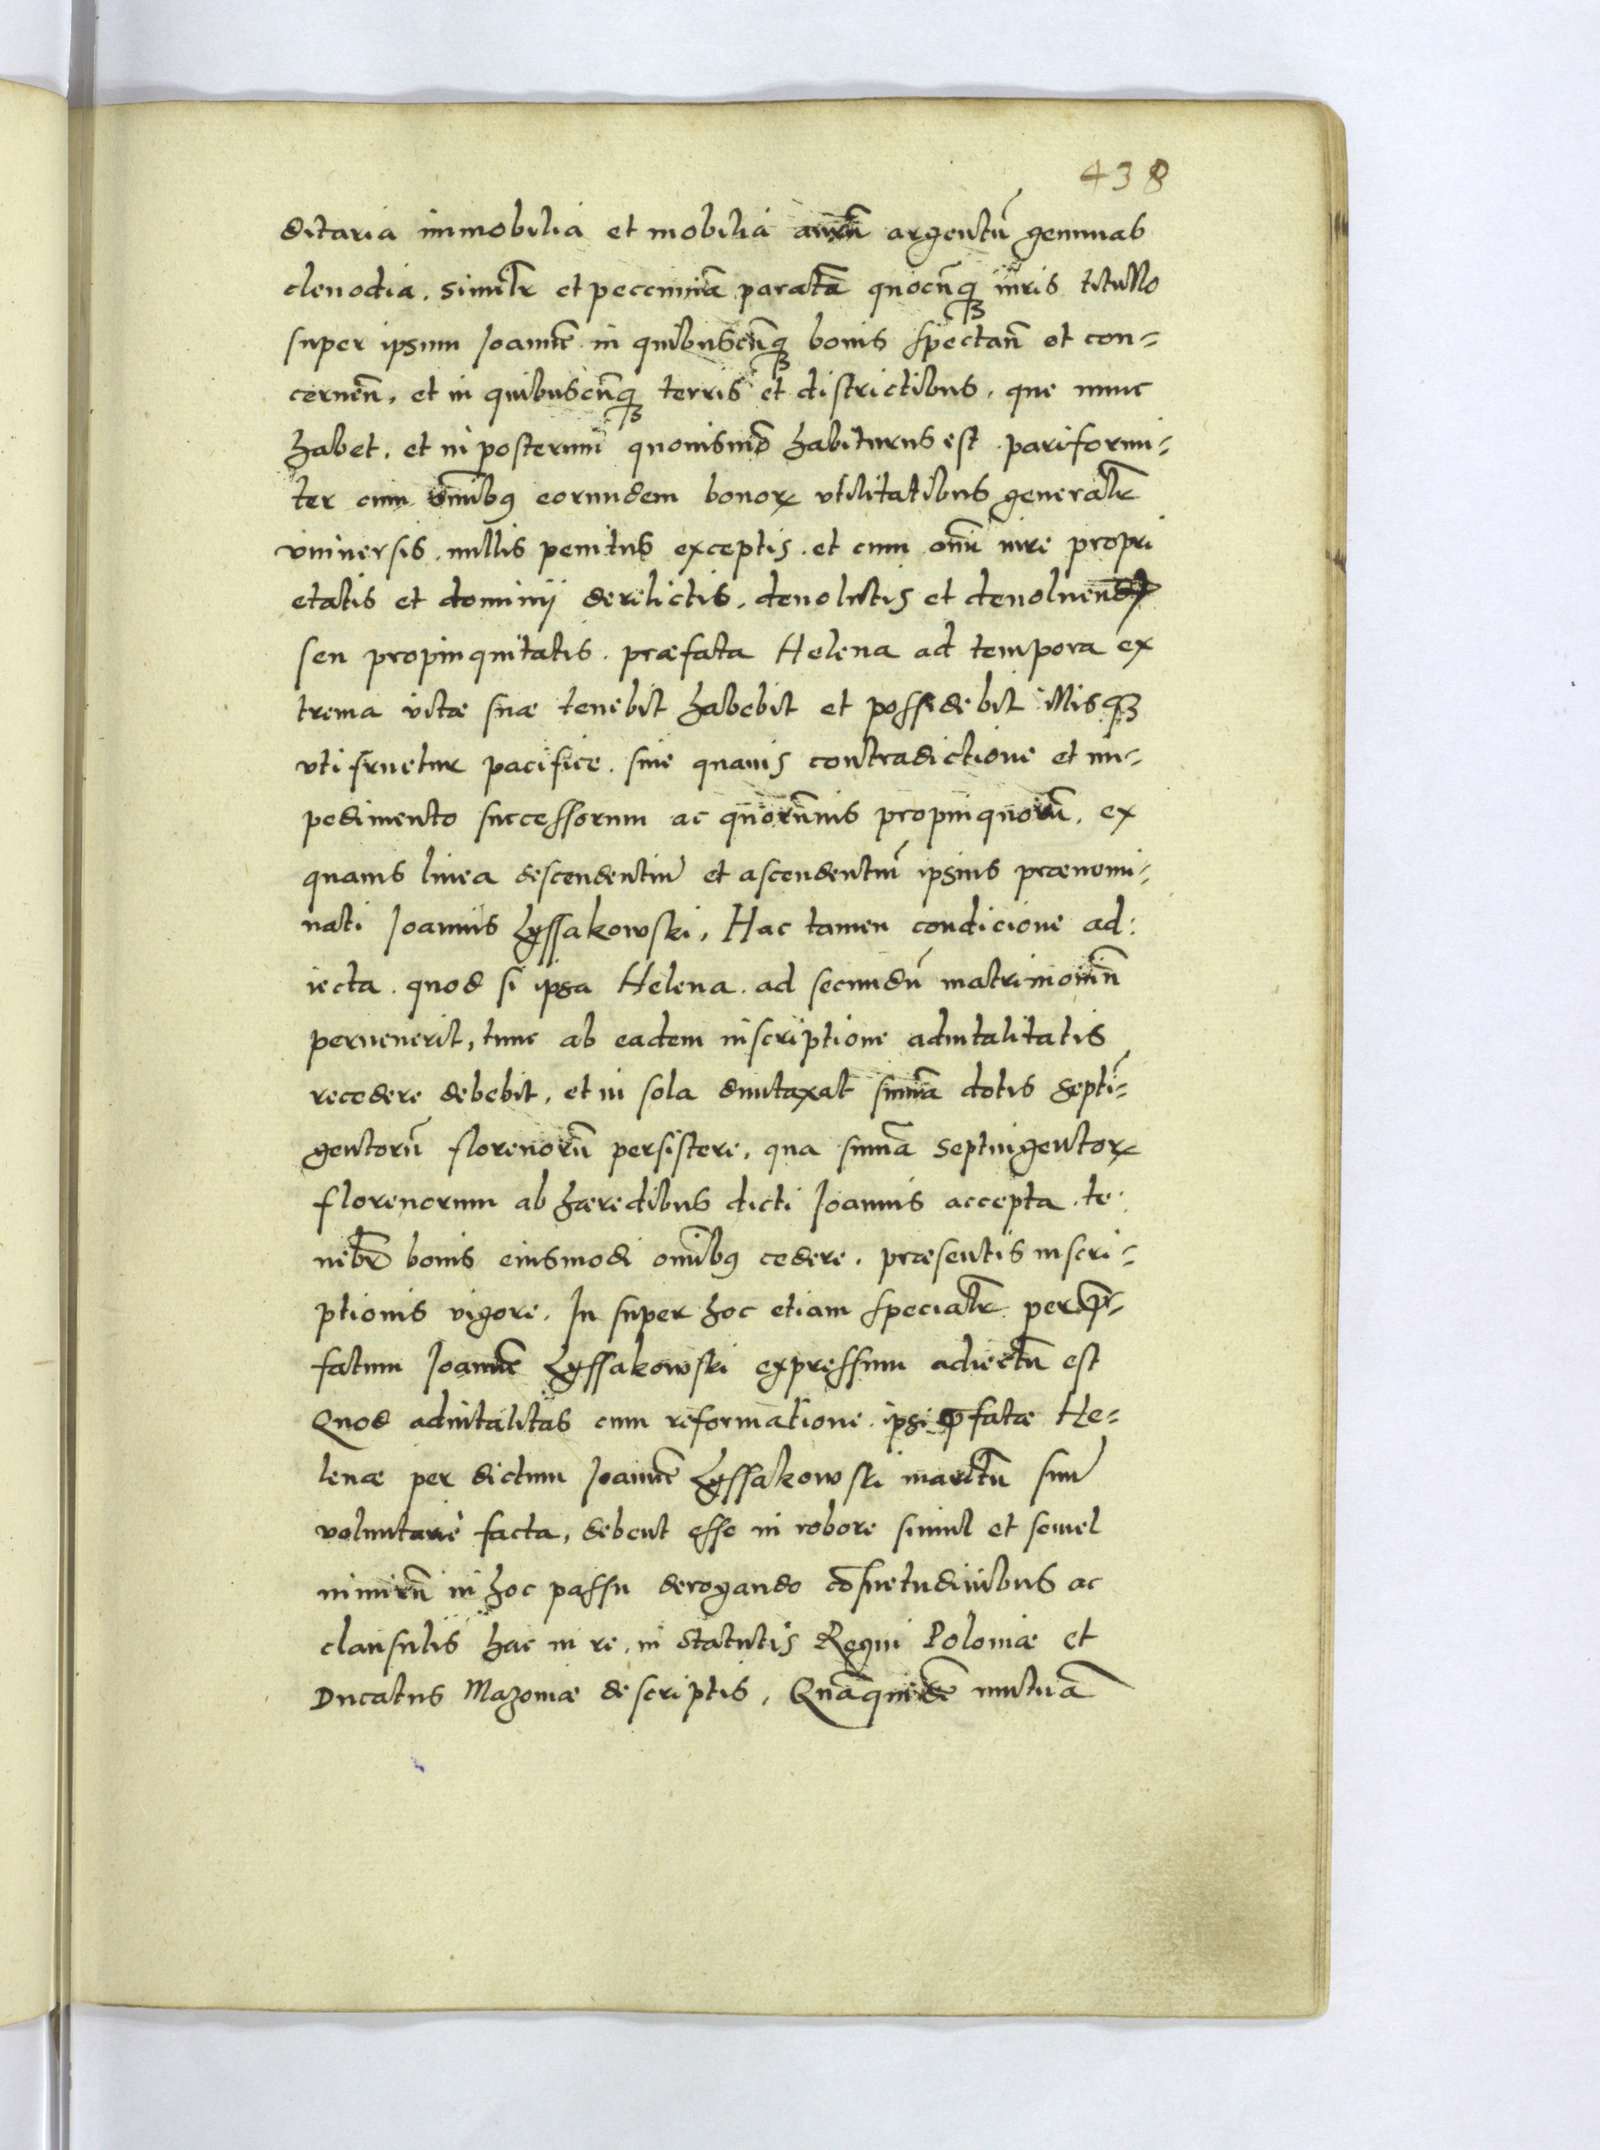 438
ditaria immobilia et mobilia aurū argentū gemmas
clenodia. similr̃ et peccuniā paratā quocūq₃ iuris titullo
super ipsum Joannē in quibuscūq₃ bonis spectan̄ et con=
cernen̄, et in quibuscūq₃ terris et districtibus, que nunc
habet, et in posterum quouismō habiturus est. pariformi=
ter cum oīnibꝰ eorundem bonoꝝ vtilitatibus generalr̃
vniuersis. nullis penitus exceptis. et cum omī iure propri
etatis et dominij derelictis, deuolutis et deuoluend
seu propinquitatis. præfata Helena ad tempora ex
trema vitæ suæ tenebit habebit et possidebit illisq₃
vti fruetur pacifice. sine quauis contradictione et im=
pedimento successorum ac quorūuis propinquorū, ex
quauis linea descendentiū et ascendentiū ipsius prænomi=
nati Joannis Lyssakowski, Hac tamen condicione ad:
iecta. quod si ipsa Helena. ad secundū matrimoniū
peruenerit, tunc ab eadem inscriptione aduitalitatis
recedere debebit, et in sola duntaxat sum̄a dotis septī=
gentorū florenorū persistere, qua sum̄a septingentoꝝ
florenorum ab hæredibus dicti Joannis accepta. te:
nebr̃ bonis eiusmodi om̄ibꝰ cedere. præsentis inscri=
ptionis vigore. In super hoc etiam specialr̃ per p̄=
fatum Joannē Lyssakowski expressum adiectū est
Quod aduitalitas cum reformatione. ipsi p̄fatæ He=
lenæ per dictum Joannē Lyssakowski maritū suū
voluntarie facta, debent esse in robore simul et semel
nimirū in hoc passu derogando cōsuetudinibus ac
clausulis hac in re, in statutis Regni Poloniæ et
Ducatus Mazouiæ descriptis, Quāquidē mutuā